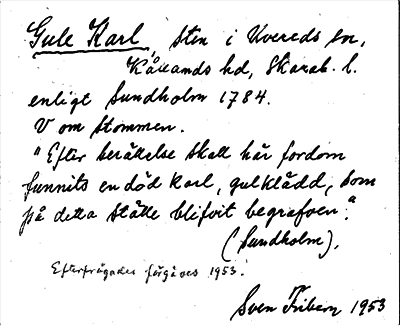 Gule Karl, sten i Uvereds sn,
Kållands hd, Skarab. l.
enligt Sundholm 1784.
V om Stommen.
"Efter berättelse skall här fordom
funnits en död karl, gulklädd, som
på detta ställe blifvit begrafven".
(Sundholm).
Efterfrågades förgäves 1953.
Sven Friberg 1953